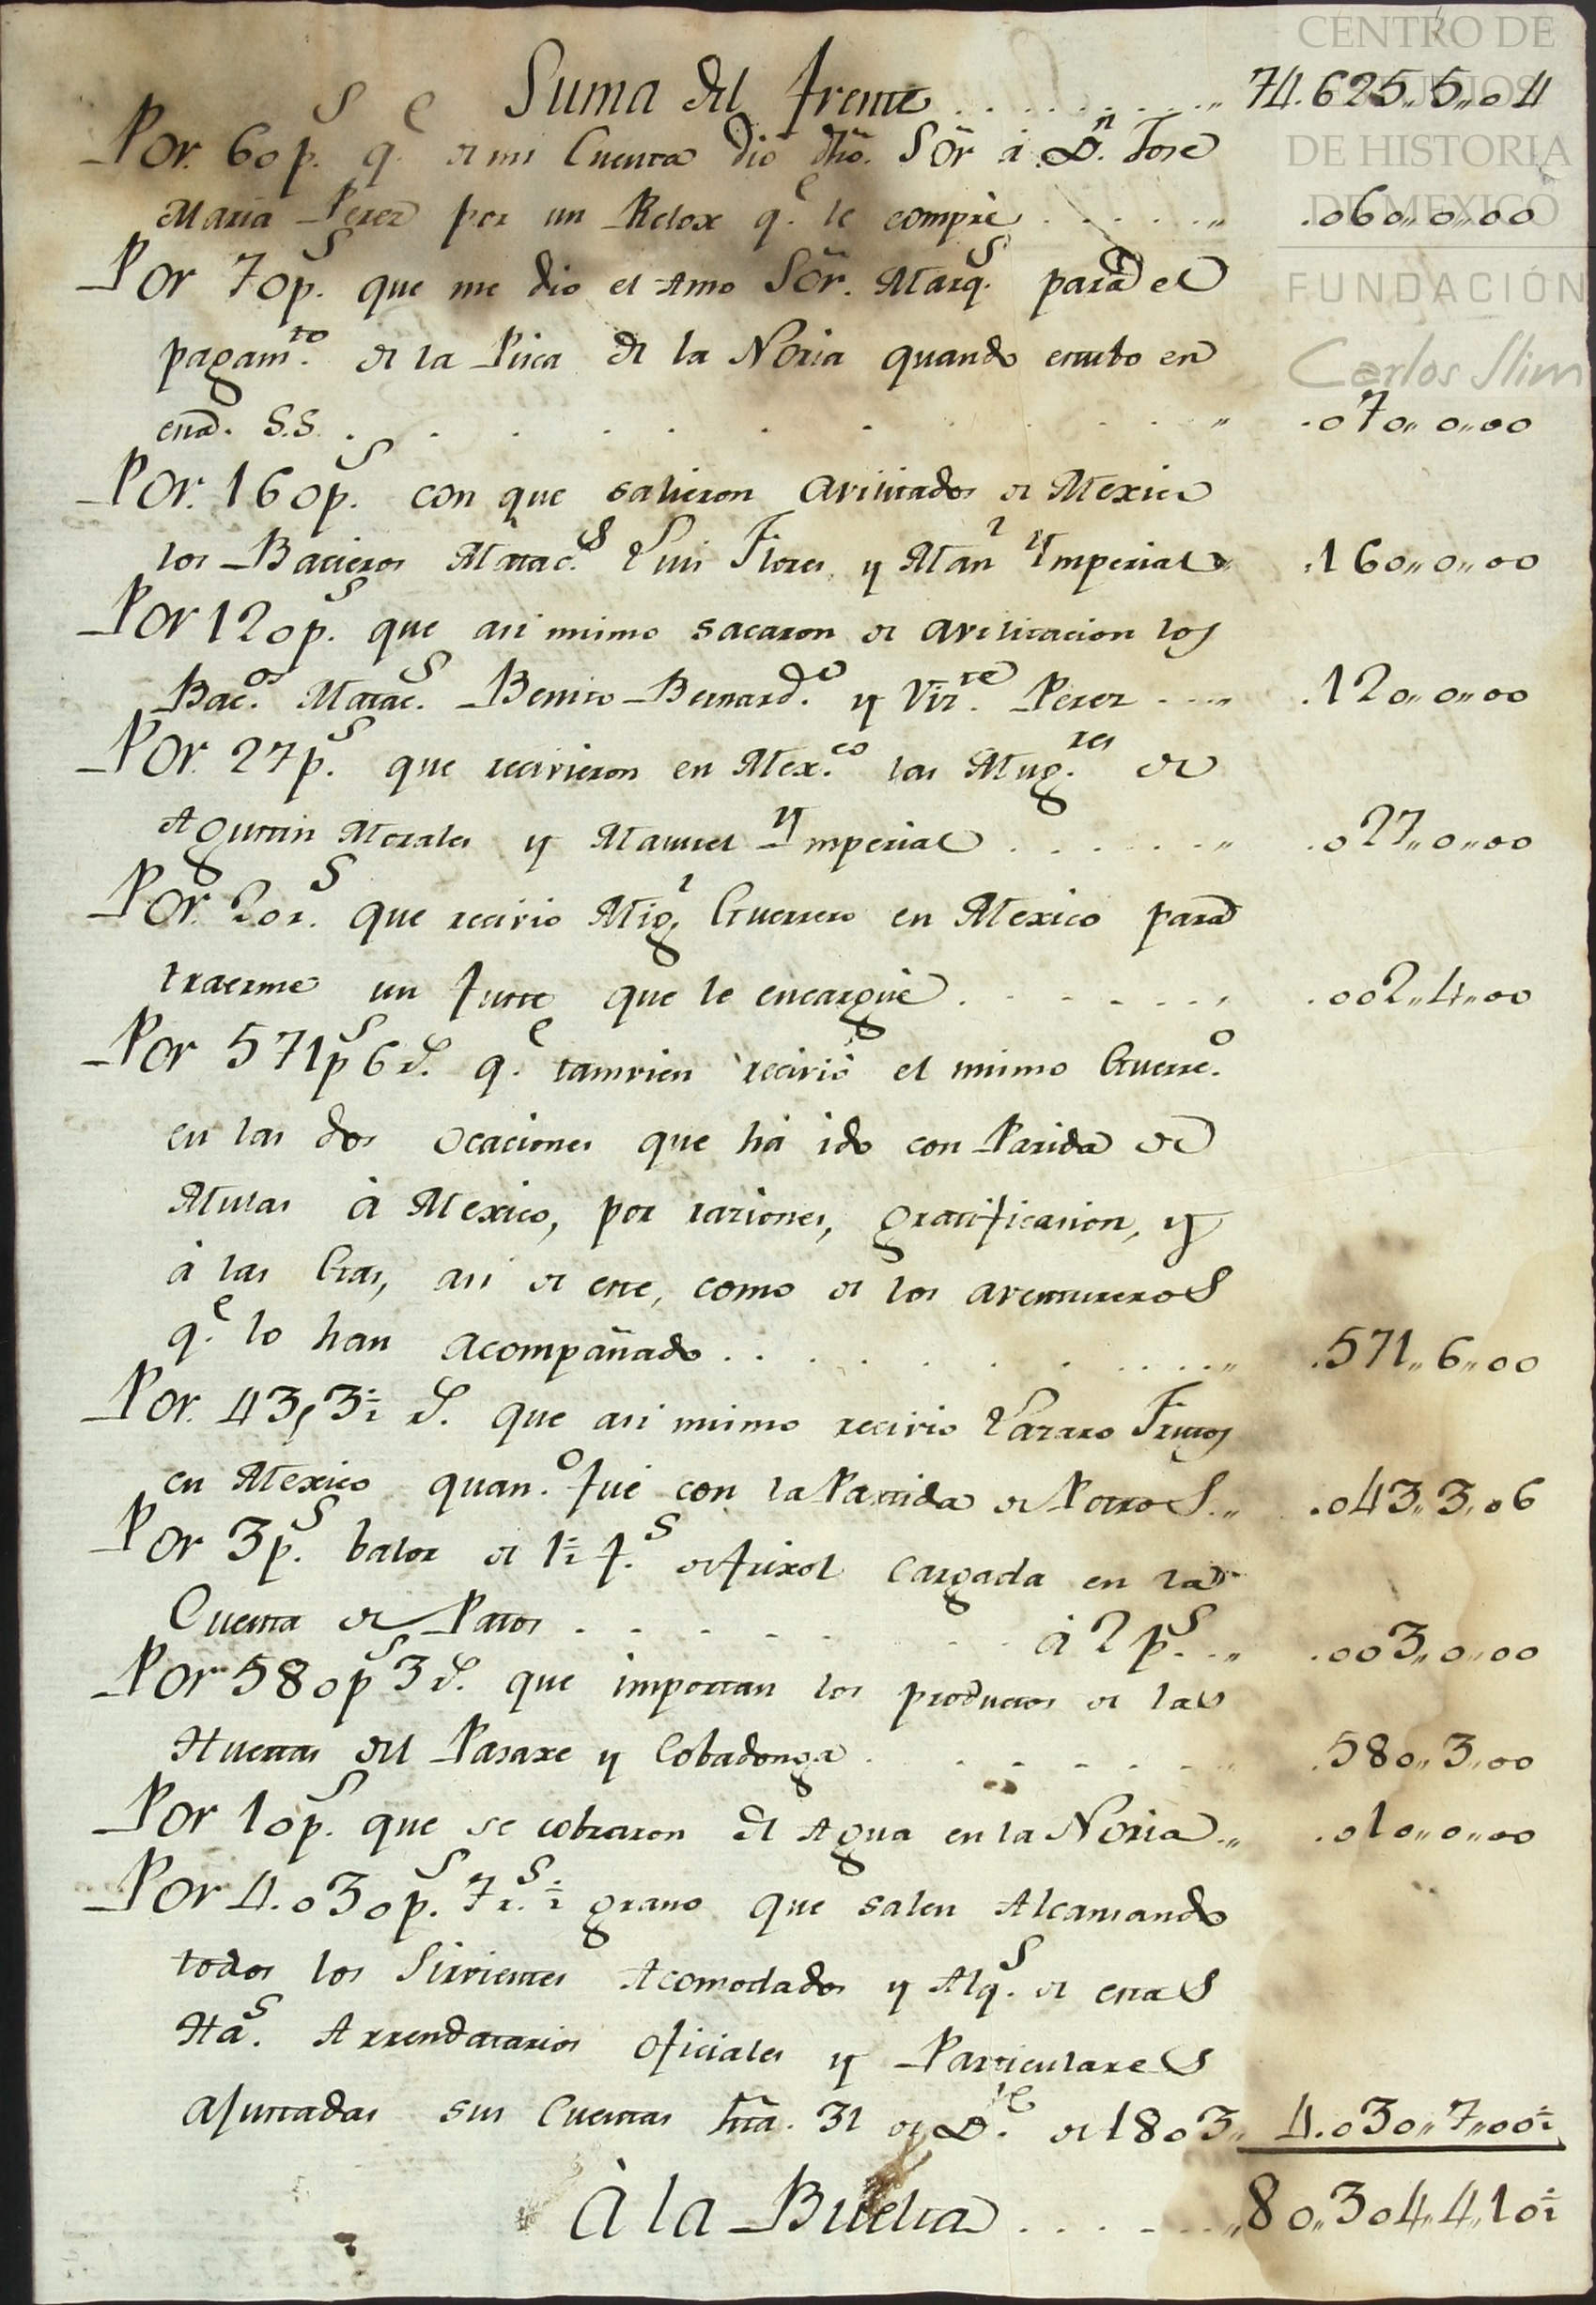 CENTRO DE
ESTUDIOS
DE HISTORIA
DE MEXICO
FUNDACIÓN
Carlos Slim
Suma del frente . . . . . . . . . . „ 74.625„5„04
Por. 60 p.s q.e de mi Cuenta dió dho. Sõr á D.n Jose
Maria Perez por un Relox q.e le compré . . . . . . „ .060„0„00
Por 70 p.s que me dio el Amo Sõr. Marq.s para el
pagam.to de la Pisca de la Noria quando estubo en
esta. S.S. . . . . . . . . . . „ .070„0„00
Por. 160 p.s con que salieron avilitados de Mexico
los Bacieros Matac.s Luis Flores y Man.l Ymperial „ .160„0„00
Por 120 p.s que asi mismo sacaron de avilitacion los
Bac.os Matac.s Benito Bernard.o y Viz.te Perez . . . „ .120„0„00
Por. 27 p.s que recivieron en Mex.co las Mug.res de
Agustin Morales y Manuel Ymperial . . . . . . „ .027„0„00
Por. 20 r.s que recivio Mig.l Guerrero en Mexico para
traerme un fuste que le encargué . . . . . . . , .002„4„00
Por 571 p.s 6 r.s q.e tamvien recivió el mismo Guerre.o
en las dos ocaciones que há ido con Parida de
Mulas á Mexico, por raziones, gratificasion, y
á las Gras, asi de este, como de los aventureros
q.e lo han acompañado . . . . . . . . . . „ .571„6„00
Por. 43, 3½ r.s que asi mismo recivio Lazaro Frutos
en Mexico quan.o fué con la Partida de Potros . „ .043„3„06
Por 3 p.s balor de 1½ f.s de frixol cargada en la
Cuenta de Patos . . . . . . á 2 p.s . „ .003„0„00
Por 580 p.s 3 r.s que importan los productos de las
Huertas del Pasaxe y Cobadonga . . . . . . . „ .580„3„00
Por 10 p.s que se cobraron del Agua en la Noria . „ .010„0„00
Por 4.030 p.s 7 r.s ½ grano que salen Alcansando
todos los Sirvientes Acomodados y Alq.s de estas
Has. Arrendatarios Oficiales y Particulares
ajustadas sus Cuentas hta. 31 de D.re de 1803„ 4.030„7„00½
Á la Buelta . . . . . . „ 80„304„4„10½